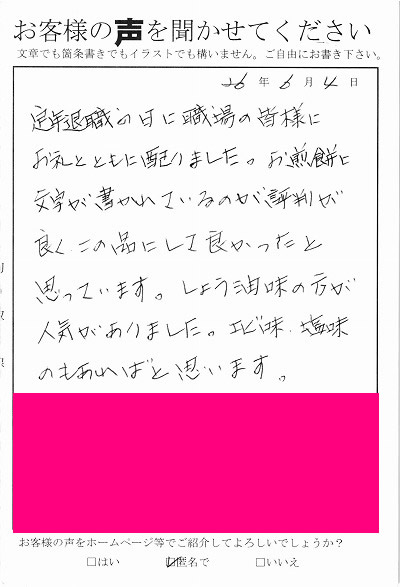 お客様の声を聞かせてください
文章でも箇条書きでもイラストでも構いません。ご自由にお書き下さい。
26年6月4日
定年退職の日に職場の皆様に
お礼とともに配りました。お煎餅に
文字が書かれているのが評判が
良くこの品にして良かったと
思っています。しょう油味の方が
人気がありました。エビ味、塩味
のもあればと思います。
お客様の声をホームページ等でご紹介してよろしいでしょうか？
□はい ☑匿名で □いいえ